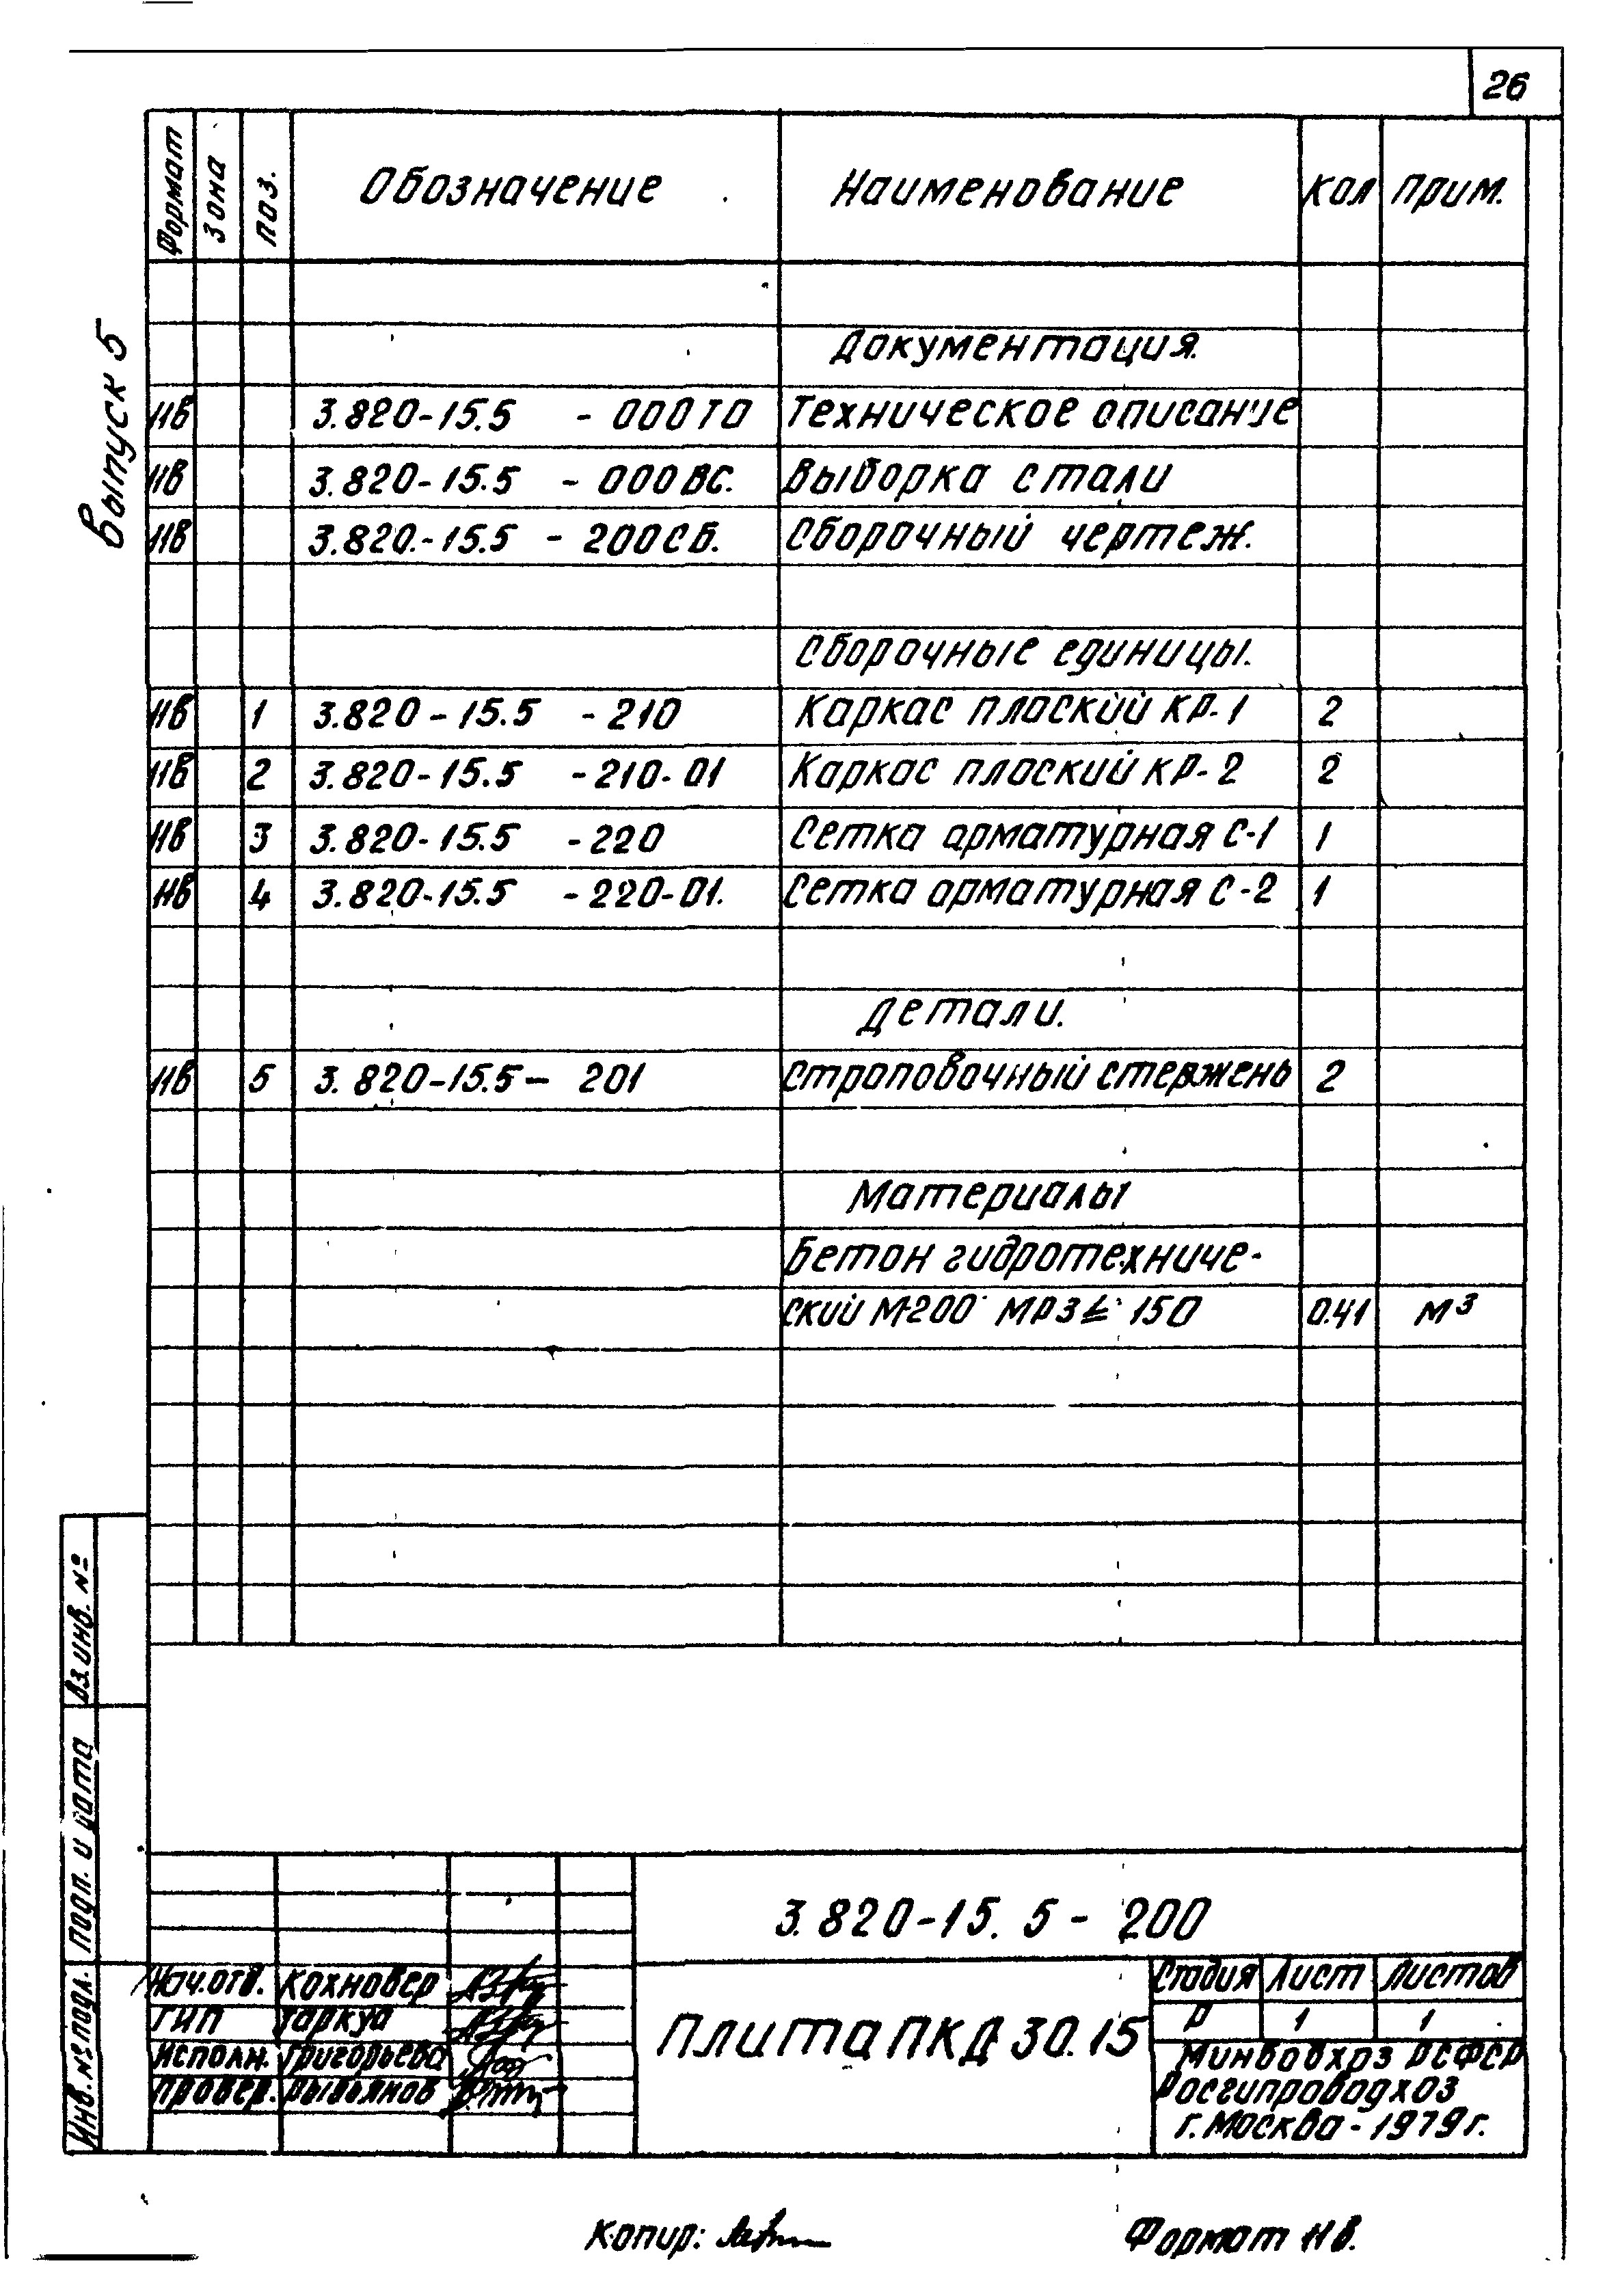 26
Выпуск 5
Формат Зона Поз. Обозначение Наименование Кол Прим.
Документация.
11в 3.820-15.5 - 000ТО Техническое описание
11в 3.820-15.5 - 000ВС. Выборка стали
11в 3.820.-15.5 - 200СБ. Сборочный чертеж.
Сборочные единицы.
11в 1 3.820-15.5 -210 Каркас плоский КР-1 2
11в 2 3.820-15.5 -210-01 Каркас плоский КР-2 2
11в 3 3.820-15.5 -220 Сетка арматурная С-1 1
11в 4 3.820-15.5 -220-01. Сетка арматурная С-2 1
Детали.
11в 5 3.820-15.5- 201 Строповочный стержень 2
Материалы
Бетон гидротехниче-
ский М-200 МРЗ 150 0.41 м³
Вз.инв. №
Подп. и дата
Инв.№ подл.
3.820-15.5-200
Нач.отд. Кохновер
ГИП Таркуа
Исполн. Григорьева
Провер.
Плита ПКД 30.15
Стадия Лист Листов
Р 1 1
Минводхоз РСФСР
Росгипроводхоз
г. Москва-1979г.
Копир: Формат 11в.